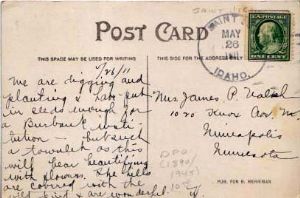 POST CARD
THIS SPACE MAY BE USED FOR WRITING
THIS SIDE IS FOR THE ADDRESS
SAINT
MAY
26
IDAHO.
ONE CENT
5/26/11
We are digging and
planting & have put
in seeds enough for
a Burbank
when such
a townlet as this
will hear beautifying
with flowers. The hills
are covered with the
wild & are wonderful
Mrs. James P.
1020 Knox Ave No.
Minneapolis
Minnesota
DPO
(1890/
1945)
PUB. FOR B. MERRIMAN